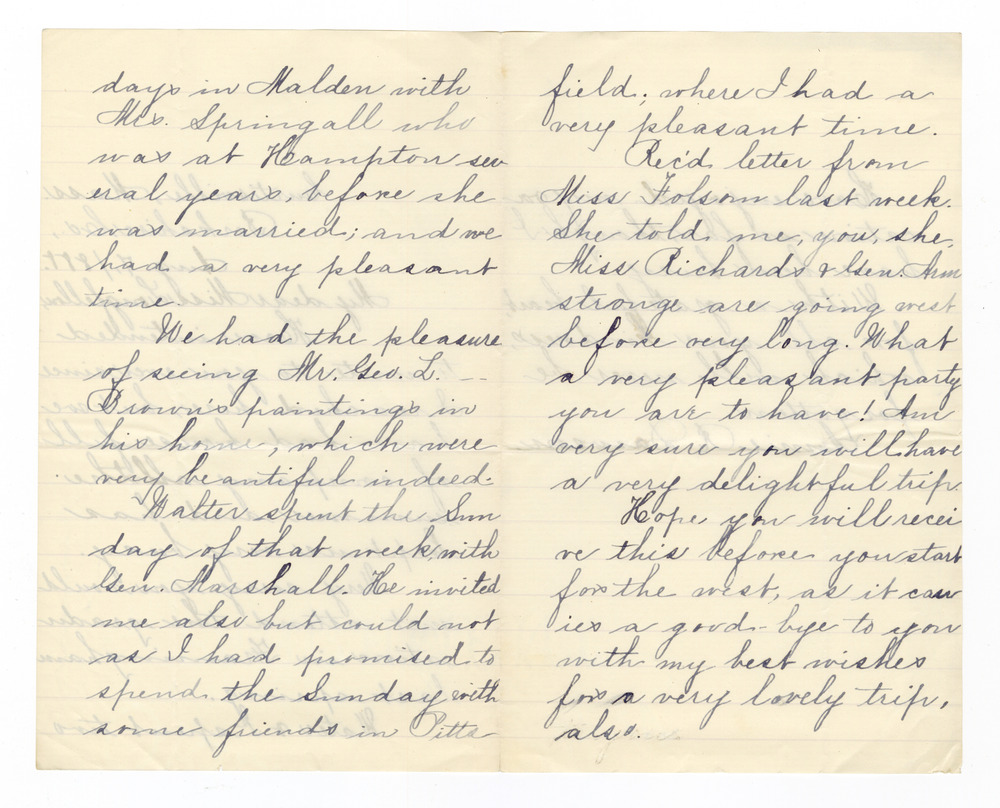 days in Malden with
Mrs. Springall who
was at Hampton sev
eral years, before she
was married; and we
had a very pleasant
time.
We had the pleasure
of seeing Mr. Geo. L. --
Brown's paintings in
his home, which were
very beautiful indeed.
Walter spent the Sun
day of that week, with
Gen. Marshall. He invited
me also but could not
as I had promised to
spend the Sunday with
some friends in Pitts-
field; where I had a
very pleasant time.
Rec'd letter from
Miss Folsom last week.
She told me, you, she,
Miss Richards & Gen. Arm
strong are going west
before very long. What
a very pleasant party
you are to have! Am
very sure you will have
a very delightful trip.
Hope you will recei
ve this before you start
for the west, as it carr
ies a good-bye to you
with my best wishes
for a very lovely trip,
also.